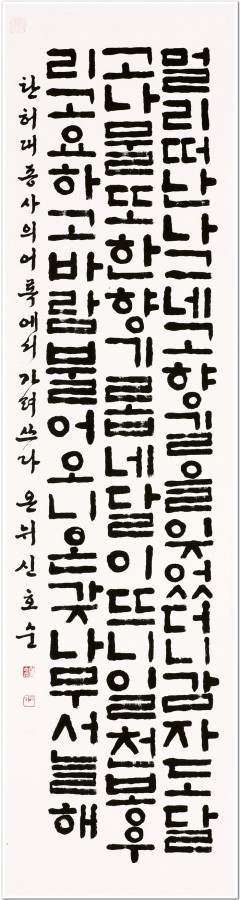 멀리떠난나그네고향길을잊었더니감자도달
고나물또한향기롭네달이뜨니일천봉우
리고요하고바람불어오니온갖나무서늘해
탄허대종사의어록에서가려쓰다 온뉘신호순